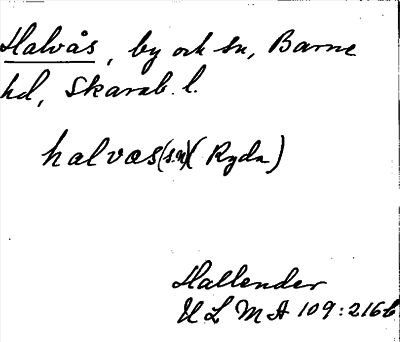 Halvås, by och sn, Barne
hd, Skarab. l.
halvas (s.n) (Ryda)
Hallender
ULMA 109:216b